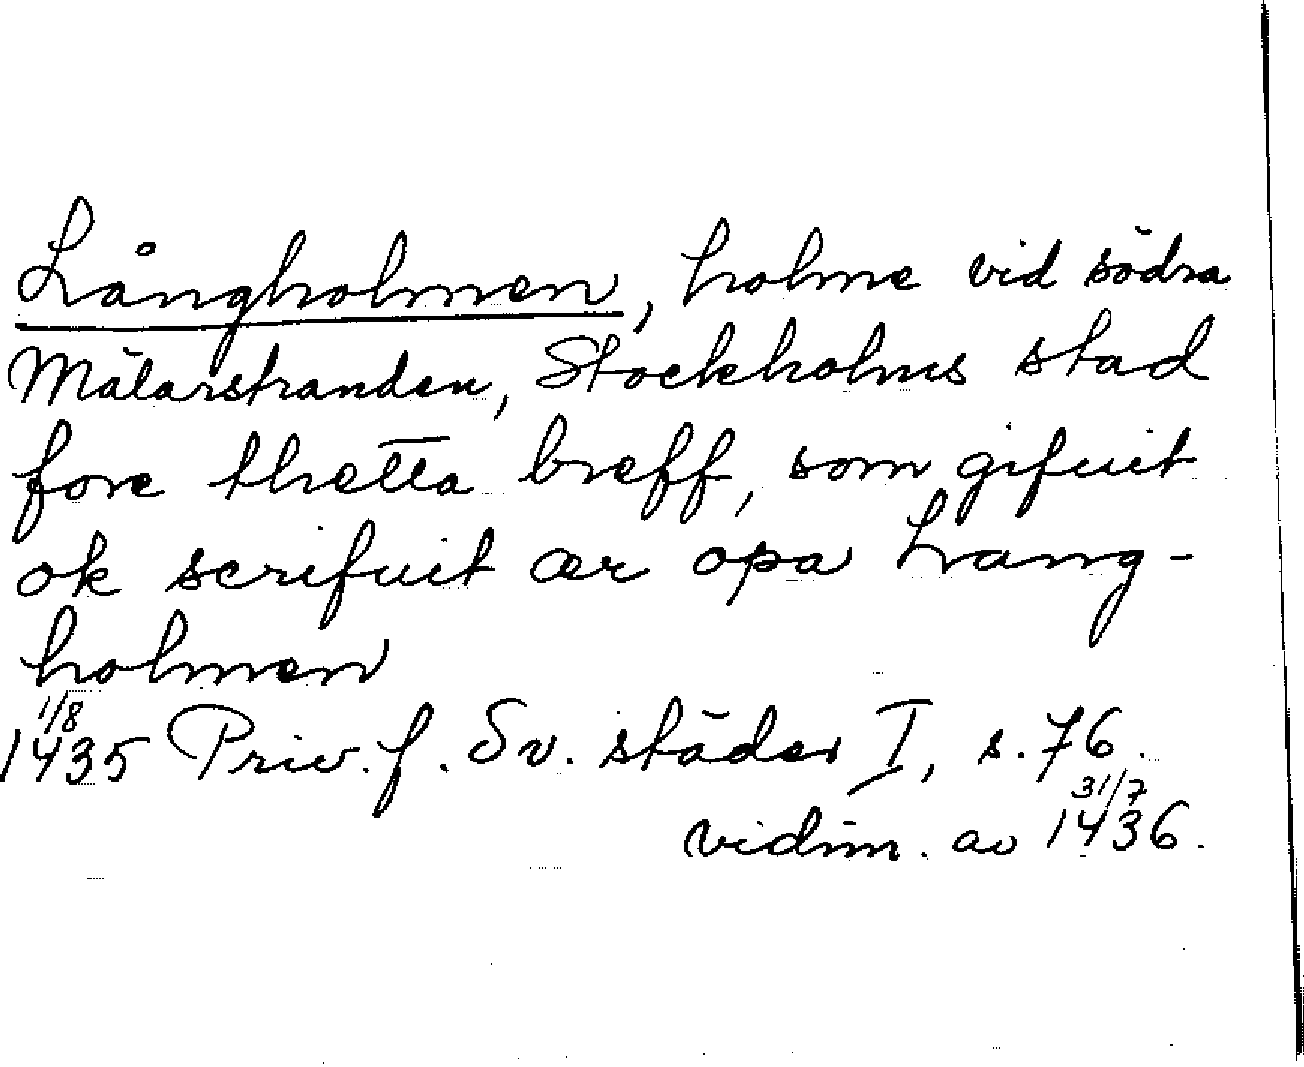 Långholmen, holme vid södra
Mälarstranden, Stockholms stad
fore thetta breff, som gifuit
ok scrifuit ær opa Lang-
holmen
1/8
1435 Priv. f. Sv. städer I, s. 76.
31/7
vidim. av 1436.